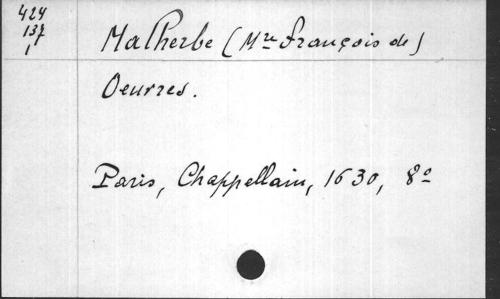 424
137
1
Malherbe (Mre François de)
Oeuvres.
Paris, Chappellain, 1630, 8º